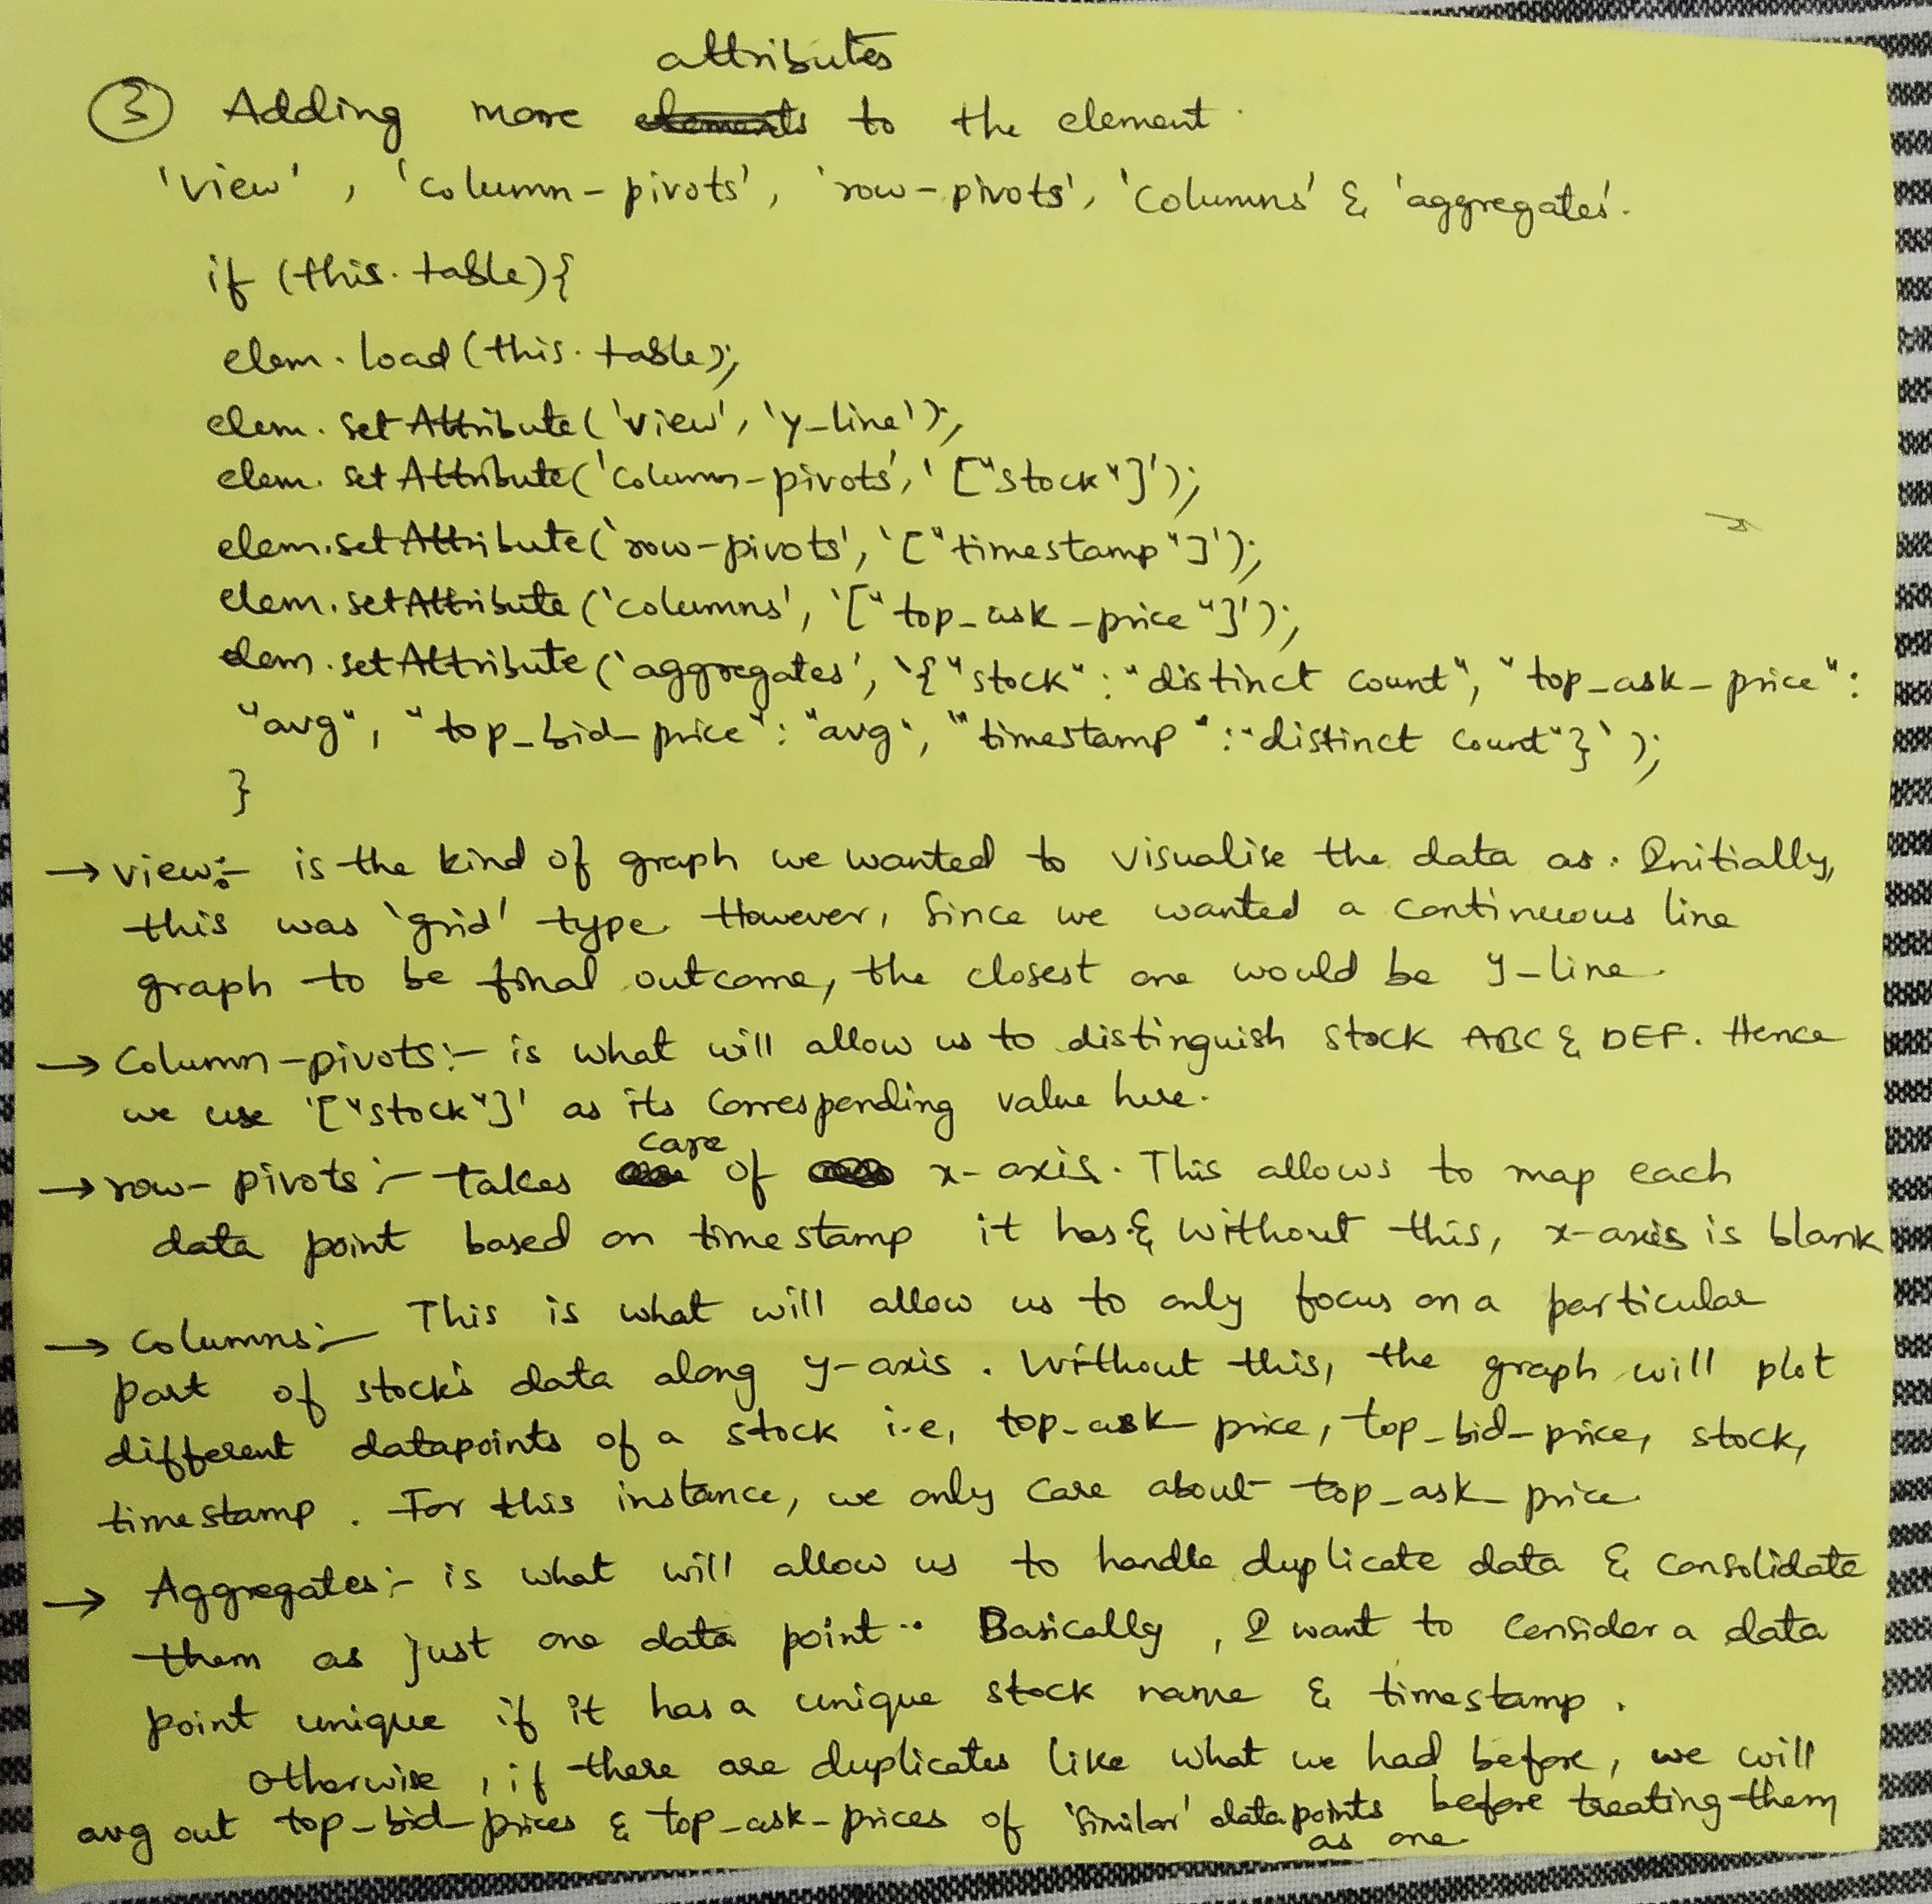 attributes
③ Adding more elements to the element.
'view', 'column-pivots', 'row-pivots', 'columns' & 'aggregates'.
if (this.table){
elem.load(this.table);
elem.setAttribute('view', 'y_line');
elem.setAttribute('column-pivots', '["stock"]');
elem.setAttribute('row-pivots', '["timestamp"]');
elem.setAttribute('columns', '["top_ask_price"]');
elem.setAttribute('aggregates', '{"stock":"distinct count", "top_ask_price":
"avg", "top_bid_price":"avg", "timestamp":"distinct count"}');
}
→ view:- is the kind of graph we wanted to visualise the data as. Initially,
this was 'grid' type. However, since we wanted a continuous line
graph to be final outcome, the closest one would be y-line.
→ Column-pivots:- is what will allow us to distinguish stock ABC & DEF. Hence
we use '["stock"]' as its corresponding value here.
care
→ row-pivots:- takes of x-axis. This allows to map each
data point based on timestamp it has & without this, x-axis is blank
→ Columns:- This is what will allow us to only focus on a particular
part of stock's data along y-axis. Without this, the graph will plot
different datapoints of a stock i.e, top_ask_price, top_bid_price, stock,
timestamp. For this instance, we only care about top_ask_price.
→ Aggregates:- is what will allow us to handle duplicate data & consolidate
them as just one data point.. Basically, I want to consider a data
point unique if it has a unique stock name & timestamp.
Otherwise, if there are duplicates like what we had before, we will
avg out top_bid_prices & top_ask_prices of 'similar' datapoints before treating them
as one